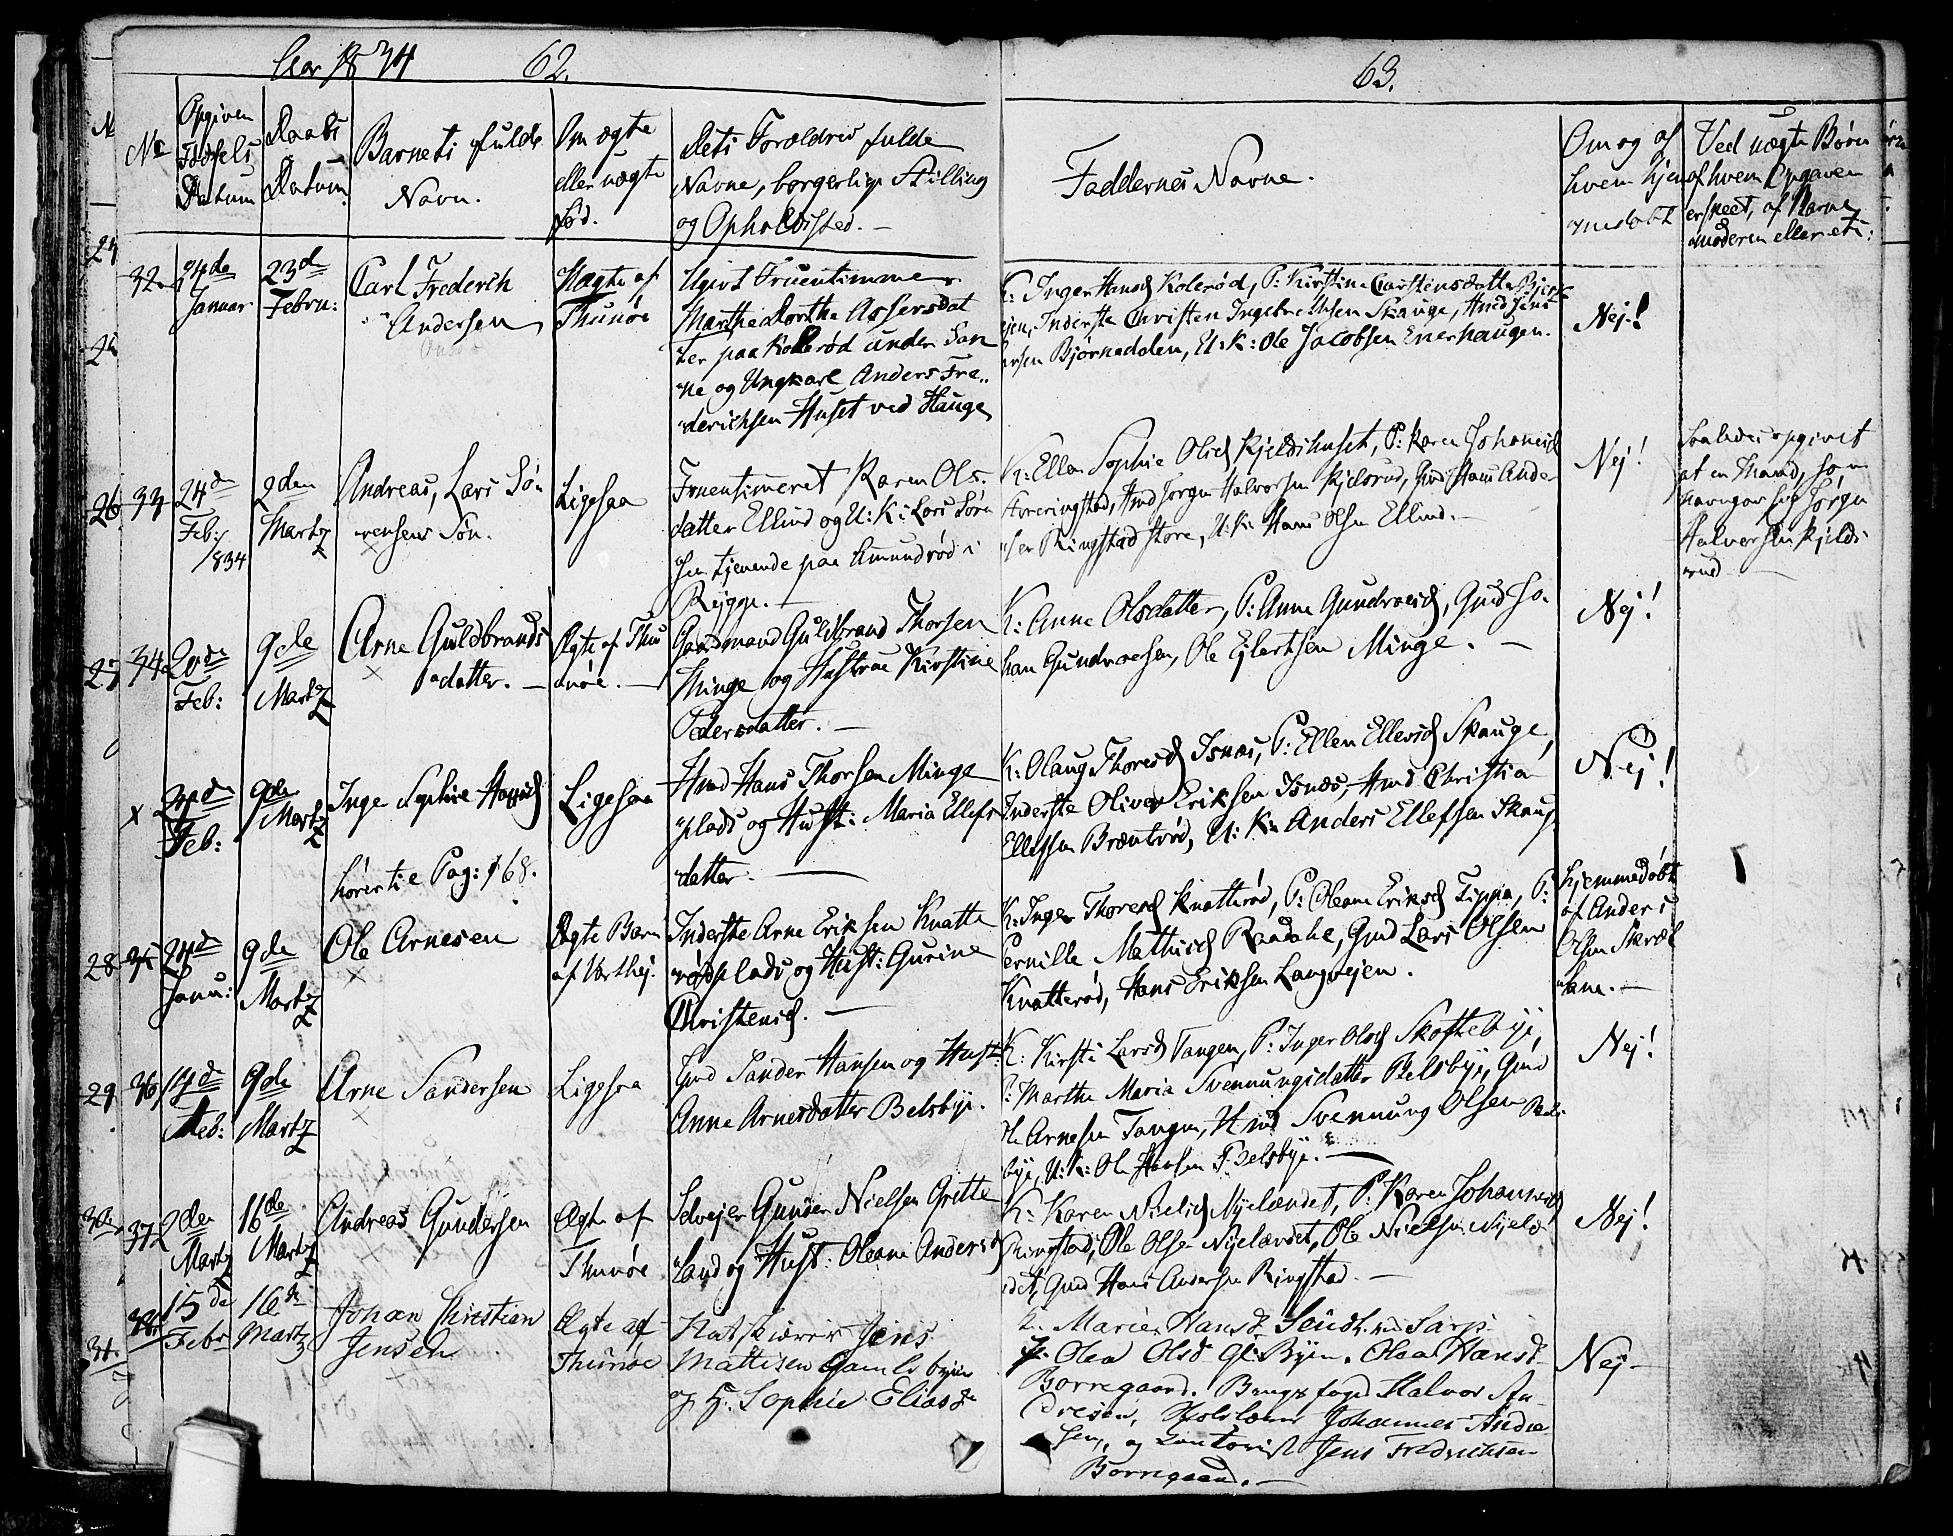 Aar 1834
62.
63.
No
Opgiven
Fødsels
Datum
Daabs
Datum
Barnets fulde
Navn.
Om ægte
eller uægte
fød.
Dets Forældres fulde
Navne, borgerlige Stilling
og Opholdsted. —
Faddernes Navne.
Om og af
hvem hjem
medøbt
Ved uægte Børn
af hvem Opgaven
er skeet, af Barne
moderen eller et:
32.
24de
Januar
23de
Febru:
Carl Frederik
Andersen
Uægte af
Thunøe
Ugivt Fruentimmer
Marthe Dorthe Assersdat
ter paa Kolerød under San
ne og Ungkarl Anders Fre
derichsen Huset ved Hauge
K: Inger Hansd Kolerød, P: Kirstine Carstensdatter
Inderste Christen Ingebrethsen Skauge, Hmd Jens
Bjørnedalen, U: K: Ole Jacobsen Enerhaugen.
Nej!
26
33
24de
Feb:
/834
2den
Martz
Andreas, Lars Sø
rensens Søn.
Ligesaa
Fruentimeret Karen Ols
datter Ellind og U: K: Lars Søren
sen tjenende paa Amundrød i
Rygge. —
K: Ellen Sophie Olsd Kjeldshuset, P: Karen Johannesd
Ringstad, Hmd Jørgen Halvorsen Kjelsrud, Gmd Hans Ande
sen Ringstad store, U: K: Hans Olsen Ellind. —
Nej!
Saaledes opgivet
at en Mand, som
navngav sig Jørgen
Halvorsen Kjelds
rud —
27
34
20de
Feb:
9de
Martz
Anne Guldbrands
datter. —
Ægte af Thu
nøe. —
Gaardmand Guldbrand Thorsen
Minge og Hustrue Kirstine
Pedersdatter. —
K: Anne Olsdatter, P: Anne Gundroesd, Gmd Jo
han Gundroesen, Ole Ejlertsen Minge. —
Nej!
x
Feb:
9de
Martz
Inge Sophie Hansd
hører til Pag: 168.
Ligesaa
Hmd Hans Thorsen Minge
plads og Hust: Maria Ellefs
datter. —
K: Olaug Thoresd Isnæs, P: Ellen Ellevsd Skauge,
Inderste Oliver Eriksen Isnæs, Hmd Christia
Ellefsen Bræntrød, U: K: Anders Ellefsen Skaug
Nej!
28
35
24de
Janu:
9de
Martz
Ole Arnesen
Ægte Barn
af Varthej.
Inderste Arne Eriksen Knatte
rødplads og Hust: Gurine
Christensd. —
K: Inger Thoresd Knatterød, P: Oleane Eriksd Tippa, P:
Pernille Mathisd Raadahl, Gmd Lars Olsen
Knatterød, Hans Eriksen Langvejen.
Hjemmedøbt
af Anders
Olsen Skræd
—
29
36
14de
Feb:
9de
Martz
Arne Sandersen
Ligesaa
Gmd Sander Hansen og Hust:
Anne Arnesdatter Belsbye.
K: Kirsti Larsd Tangen, P: Inger Olsd Skoftebye,
P: Marthe Maria Svennungsdatter Belsbye, Gmd
Ole Arnesen Tangen, Hmd Svennung Olsen Bels
bye, U: K: Ole Hansen Belsbye. —
Nej!
30
37
2den
Martz
16de
Martz
Andreas Gundersen
Ægte af
Thunøe
Selvejer Gunder Nielsen Grette
land og Hust: Oleane Andersd
K: Karen Nielsd Nyelændet, P: Karen Johannesd
Ringstad, Ole Olsen Nyelændet, Ole Nielsen Nyelæ
det, Gmd Hans Andersen Ringstad. —
Nej!
31.
38
15de
Febr
16de
Martz
Johan Christian
Jensen
Ægte af
Thunøe
Jens
Mattisen Gamlebyen
og H. Sophie Eliasd
K. Marie Hansd Sarp.
P: Olea Olsd Gl: Byen. Olea Hansd
Borregaard. Brugsfoged Halvor An
dresen, Johannes Andre
sen, og Contorist Jens Fredrichsen
Borregaard. —
Nej —